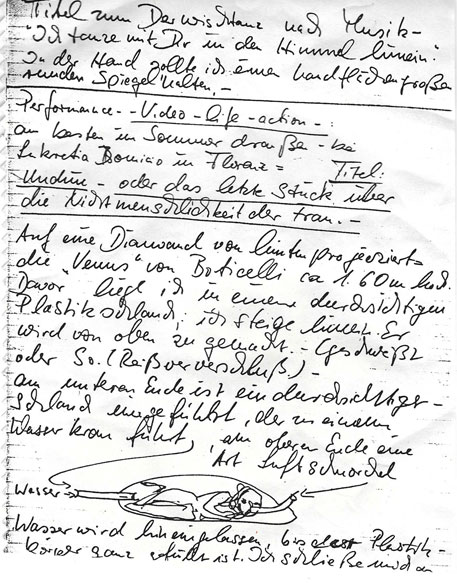 Titel zum Derwischtanz nach Musik-
"Ich tanze mit Dir in den Himmel hinein."
In der Hand sollte ich einen handflächengroßen
runden Spiegel halten.-
Performance--Video-life-action-:
am besten im Sommer draußen - bei
Lukretia Domizio in Florenz= Titel:
Undine - oder das letzte Stück über
die Nichtmenschlichkeit der Frau.-
Auf eine Diawand von hinten projeziert=
die "Venus" von Boticelli ca 1.60m hoch.
Davor liege ich in einem durchsichtigen
Plastikschlauch; ich steige hinein. Er
wird von oben zu gemacht.- (geschweißt
oder so. (Reißververschluß)-
am unteren Ende ist ein durchsichtiger-
Schlauch eingeführt, der zu einem
Wasserkran führt, am oberen Ende eine
Art Luftschnorchel
Wasser
Wasser wird hineingelassen, bis das Plastik-
körper ganz erfüllt ist. Ich schließe mich an